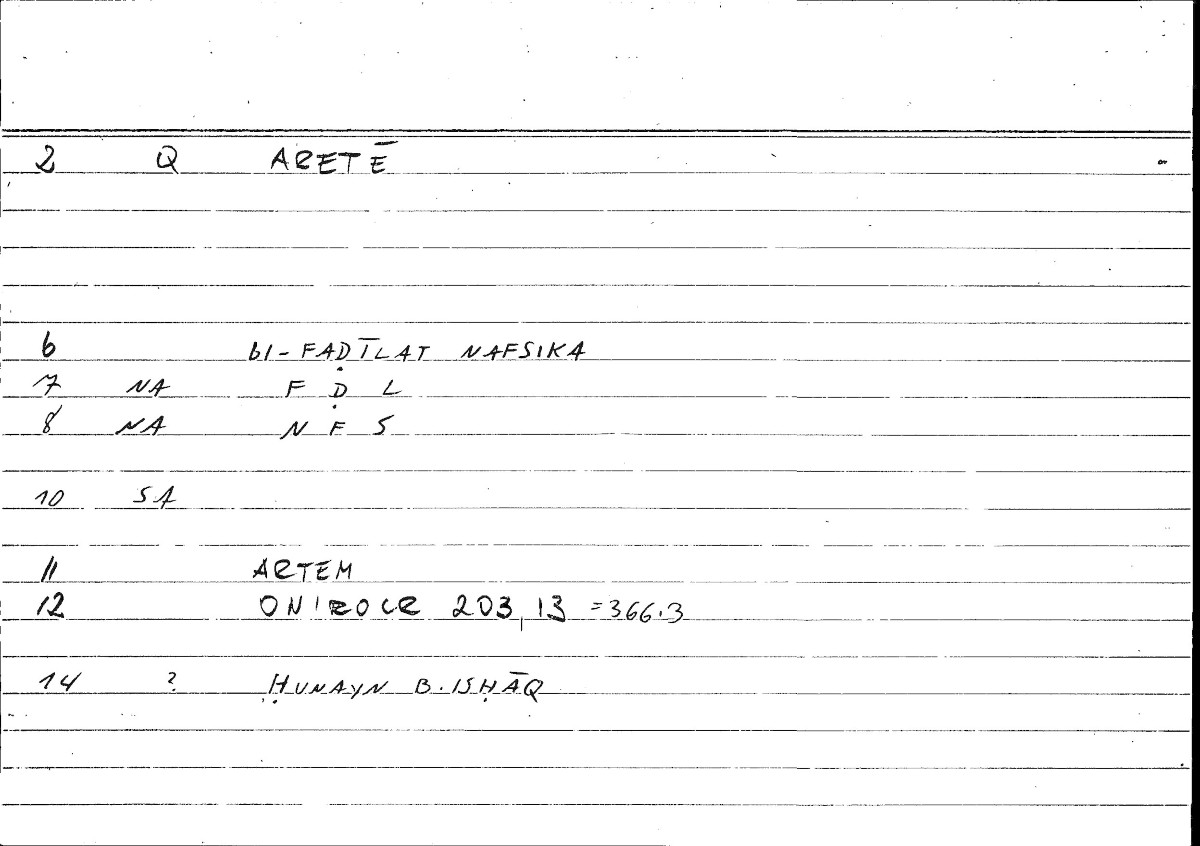 2 Q ARETĒ
6 bI-FAḌĪLAT NAFSIKA
7 NA F Ḍ L
8 NA N F S
10 SA
11 ARTEM
12 ONIROCR 203,13 =366.3
14 ? ḤUNAYN B. ISḤĀQ